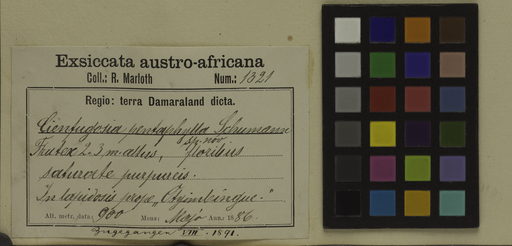 Exsiccata austro-africana
Coll.: R. Marloth Num.: 1321
Regio: terra Damaraland dicta.
Cienfugosia pentaphylla Schumann
sp. nov.
Frutex 2-3 m altus, floribus
saturate purpureis.
In lapidosis prope „Otyimbingue."
Alt. metr. data: 900 Mens: Majo Ann.: 1886.
Eingegangen VIII. 1891.